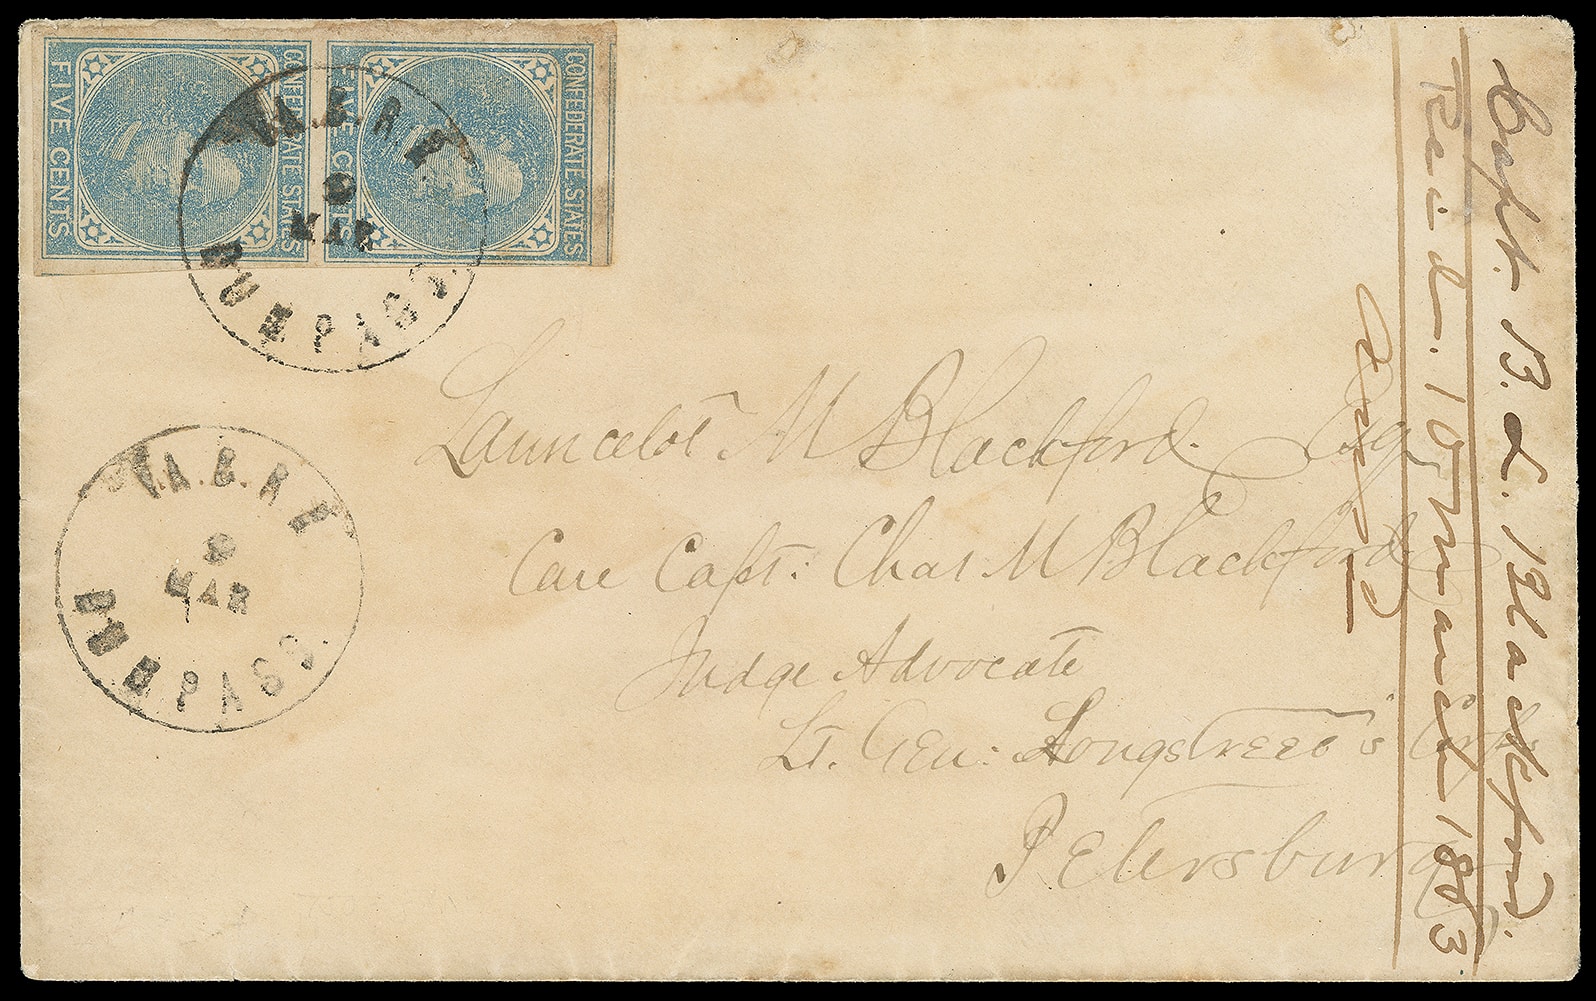 CONFEDERATE STATES
FIVE CENTS
CONFEDERATE STATES
FIVE CENTS
VA.C.R.R.
9
MAR
BUMPASS.
VA.C.R.R.
9
MAR
BUMPASS.
Launcelot M Blackford. Esq
Care Capt. Chas M Blackford
Judge Advocate
Lt. Gen: Longstreet's Corps
Petersburg
Capt. B. L. Blackford.
Rec'd. 10, March 1863.